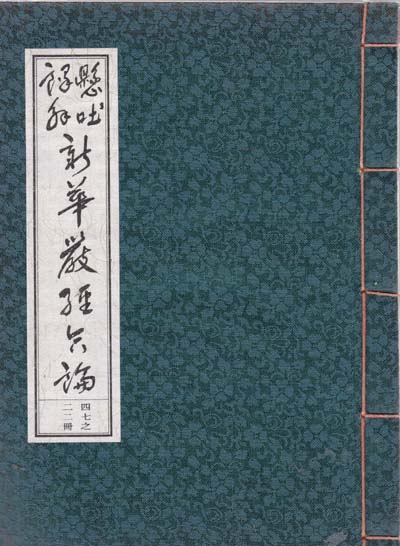 懸吐
譯解
新華嚴經合論
四七之
二二冊